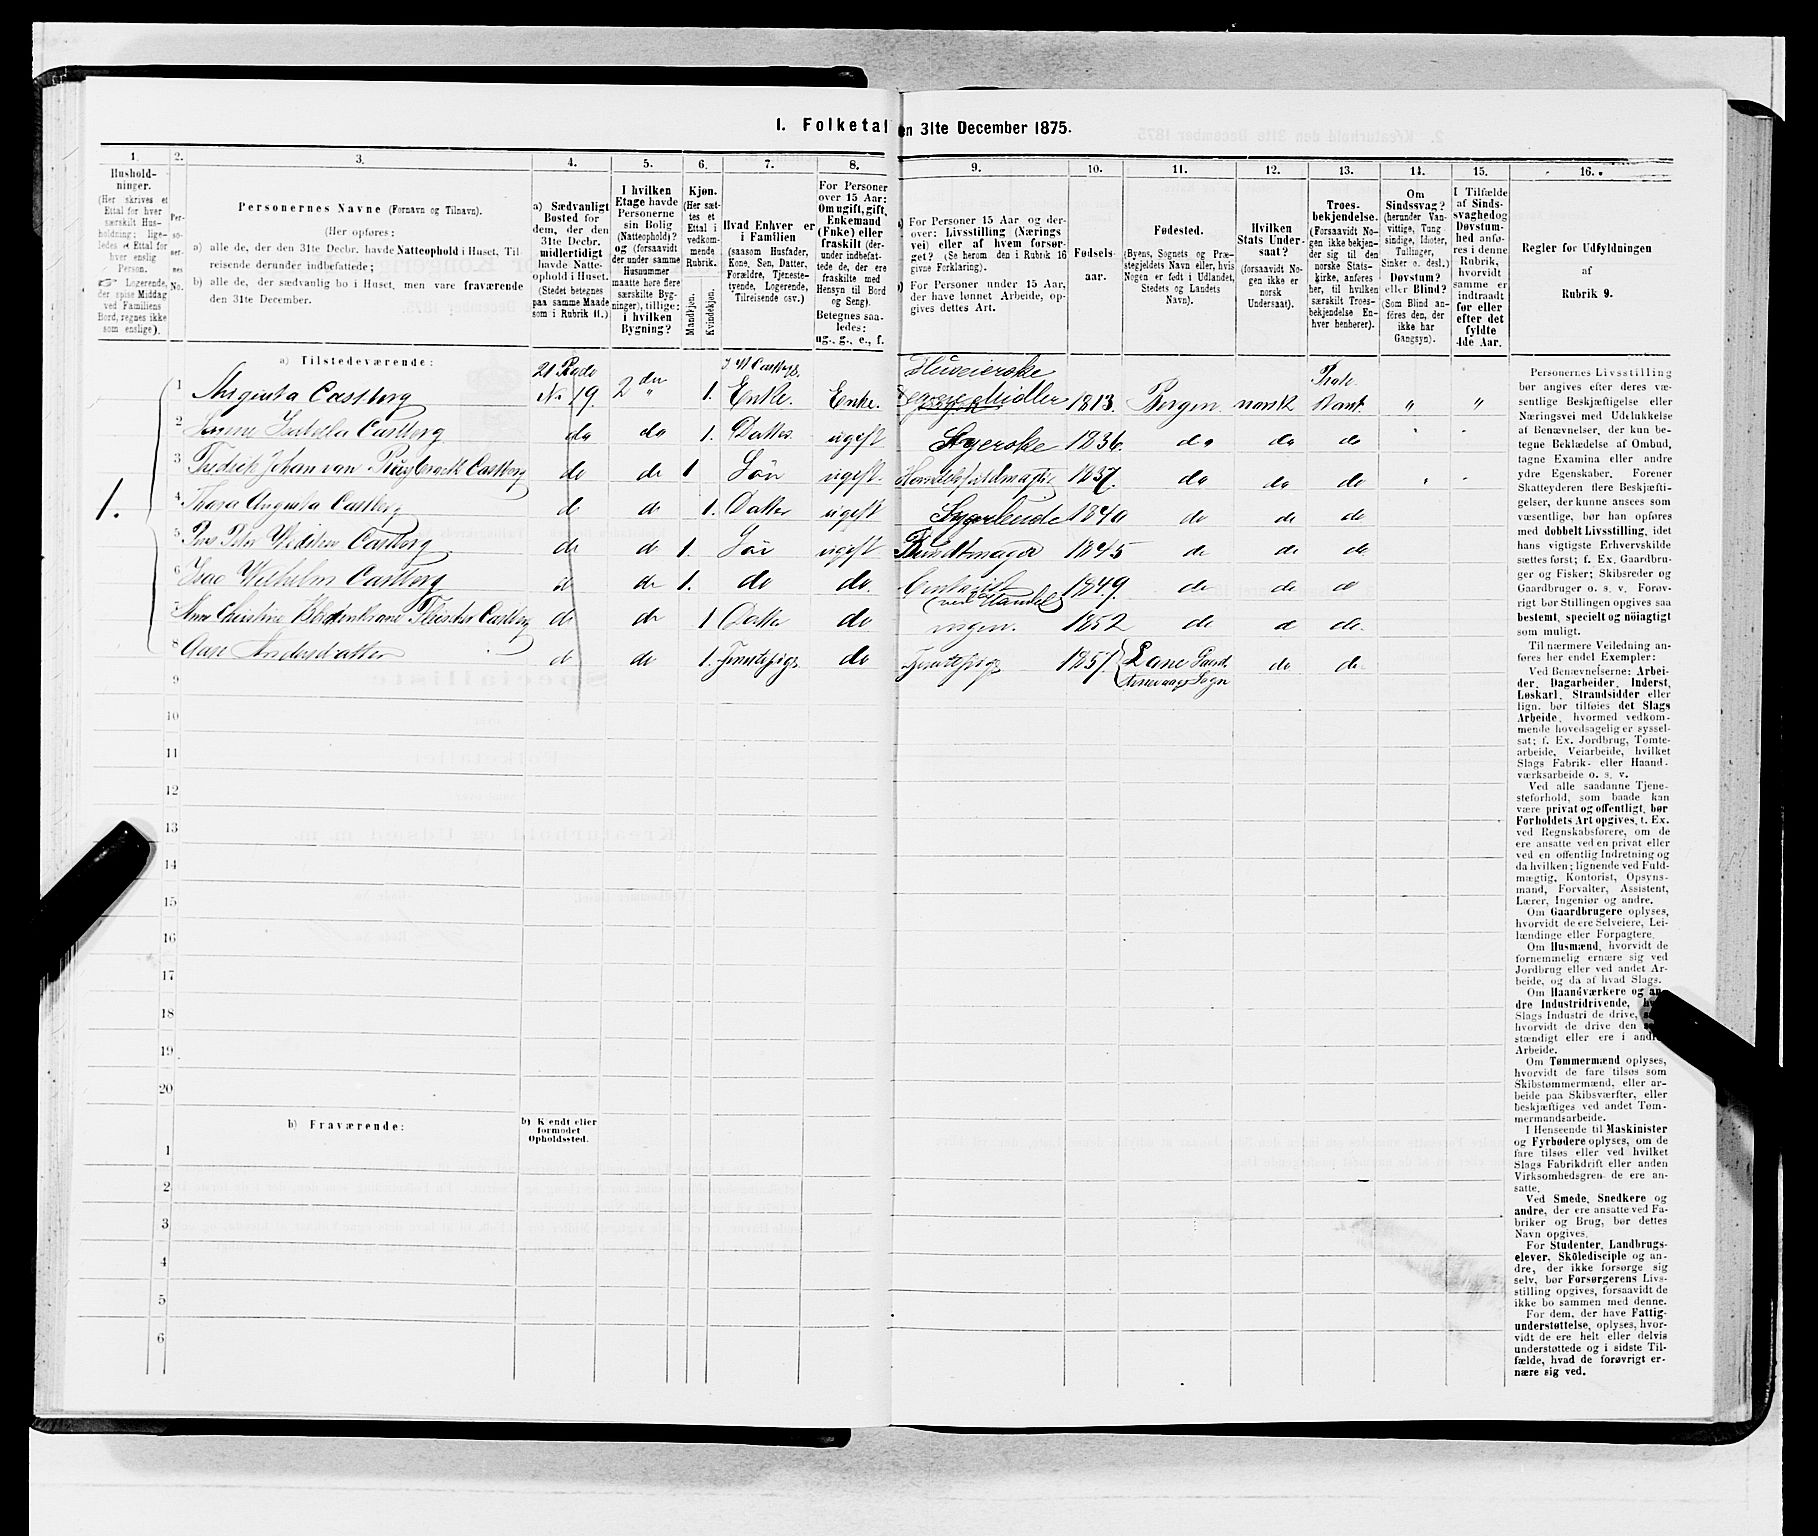 1. Folketal
en 31te December 1875.
1.
Hushold-
ninger.
(Her skrives et
Ettal for hver
særskilt Hus-
holdning; lige-
ledes et Ettal for
hver enslig
Person.
Logerende,
der spise Middag
ved Familiens
Bord, regnes ikke
som enslige).
2.
Per-
so-
ner-
nes
No.
3.
Personernes Navne (Fornavn og Tilnavn).
(Her opføres:
a) alle de, der den 31te Decbr. havde Natteophold i Huset, Til-
reisende derunder indbefattede;
b) alle de, der sædvanlig bo i Huset, men vare fraværende
den 31te December.
4.
a) Sædvanligt
Bosted for
dem, der den
31te Decbr.
midlertidigt
havde Natte-
ophold i Huset.
(Stedet betegnes
paa samme Maade
som i Rubrik 11.)
5.
I hvilken
Etage havde
Personerne
sin Bolig
(Natteophold)?
og (forsaavidt
der under samme
Husnummer
maatte høre flere
særskilte Byg-
ninger), tillige:
i hvilken
Bygning?
6.
Kjøn.
(Her sæt-
tes et
Ettal i
vedkom-
mende
Rubrik.
Mandkjøn.
Kvindekjøn.
7.
Hvad Enhver er
i Familien
(saasom Husfader,
Kone, Søn, Datter,
Forældre, Tjeneste-
tyende, Logerende,
Tilreisende osv.)
8.
For Personer
over 15 Aar:
Om ugift, gift,
Enkemand
(Enke) eller
fraskilt (der-
under indbefat-
tede de, der ere
fraskilte med
Hensyn til Bord
og Seng).
Betegnes saa-
ledes:
ug., g., e., f.
9.
a) For Personer 15 Aar og der-
over: Livsstilling (Nærings
vei) eller af hvem forsør-
get? (Se herom den i Rubrik 16
givne Forklaring).
b) For Personer under 15 Aar,
der have lønnet Arbeide, op-
gives dettes Art.
10.
Fødsels-
aar.
11.
Fødested.
(Byens, Sognets og Præ-
stegjeldets Navn eller, hvis
Nogen er født i Udlandet,
Stedets og Landets
Navn).
12.
Hvilken
Stats Under-
saat?
(forsaavidt No-
gen ikke er
norsk
Undersaat).
13.
Troes-
bekjendelse.
(Forsaavidt No-
gen ikke bekjen-
der sig til den
norske Stats-
kirke, anføres
her, til hvilken
særskilt Troes-
bekjendelse En-
hver henhører).
14.
Om
Sindssvag?
(herunder Van-
vittige, Tung
sindige, Idioter,
Tullinger,
Sinker o. desl.)
Døvstum?
eller Blind?
(Som Blind an-
føres den, der
ikke har
Gangsyn).
15.
I Tilfælde
af Sinds-
svaghed og
Døvstum-
hed anfø-
res i denne
Rubrik,
hvorvidt
samme er
indtraadt
før eller
efter det
fyldte
4de Aar.
16.
Regler for Udfyldningen
af
Rubrik 9.
a) Tilstedeværende:
1 Augusta Castberg 21 Rode No 19. 2den 1. Enke. Enke. 1813. Bergen norsk Stat " "
2 Isabella Castberg do do 1. Datter ugift Syerske 1836. do do do
3 Fredrik Johan van Castberg do do 1 Søn ugift. Handelsfuldmægtig 1837. do do do
1.
4 Thora Augusta Castberg do do 1. Datter ugift 1840 do do do
5 Castberg do do 1. Søn ugift Bundtmager 1845 do do do
6 Isac Wilhelm Castberg do do 1. do do. 1849. do do do
ved Handel
7 Christine Castberg do do 1 Datter do ingen. 1852 do do do.
8 Andersdatter do do 1. do do do
9
10
11
12
13
14
15
16
17
18
19
20
b) Fraværende:
b) Kjendt eller
formodet
Opholdssted.
1
2
3
4
5
6
Personernes Livsstilling
bør angives efter deres væ-
sentlige Beskjæftigelse eller
Næringsvei med Udelukkelse
af Benævnelser, der kun be-
tegne Beklædelse af Ombud,
tagne Examina eller andre
ydre Egenskaber. Forener
Skatteyderen flere Beskjæfti-
gelser, der kunne ansees som
væsentlige, bør han opføres
med dobbelt Livsstilling, idet
hans vigtigste Erhvervskilde
sættes først; f. Ex. Gaardbru-
ger og Fisker; Skibsreder og
Gaardbruger o. s. v. Forøv-
rigt bør Stillingen opgives saa
bestemt, specielt og nöiagtigt
som muligt.
Til nærmere Veiledning an-
føres her endel Exempler:
Ved Benævnelserne: Arbei-
der, Dagarbeider, Inderst,
Løskarl, Strandsidder eller
lign. bør tilføies det Slags
Arbeide, hvormed vedkom-
mende hovedsagelig er syssel-
sat; f. Ex. Jordbrug, Tomte-
arbeide, Veiarbeide, hvilket
Slags Fabrik- eller Haand-
værksarbeide o. s. v.
Ved alle saadanne Tjene-
steforhold, som baade kan
være privat og offentligt, bør
Forholdets Art opgives, t. Ex.
ved Regnskabsførere, om de
ere ansatte ved en privat eller
ved en offentlig Indretning og
da hvilken; lignende ved Fuld-
mægtig, Kontorist, Opsyns-
mand, Forvalter, Assistent,
Lærer, Ingeniør og andre.
Om Gaardbrugere oplyses,
hvorvidt de ere Selveiere, Lei-
lændinge eller Forpagtere.
Om Husmænd, hvorvidt de
fornemmelig ernære sig ved
Jordbrug eller ved andet Ar-
beide, og da af hvad Slags.
Om Haandværkere og an-
dre Industridrivende,
Slags Industri de drive,
hvorvidt de drive den
stændigt eller ere i
Arbeide.
Om Tømmermænd oplyses,
hvorvidt de fare tilsøs som
Skibstømmermænd, eller ar-
beide paa Skibsværfter, eller
beskjæftiges ved andet Töm-
mermandsarbeide.
I Henseende til Maskinister
og Fyrbødere oplyses, om de
fare tilsøs eller ved hvilket
Slags Fabrikdrift eller anden
Virksomhedsgren de ere an-
satte.
Ved Smede, Snedkere og
andre, der ere ansatte ved Fa-
briker og Brug, bør dettes
Navn opgives.
For Studenter, Landbrugs-
elever, Skōledisciple og an-
dre, der ikke forsørge sig
selv, bør Forsørgerens Livs-
stilling opgives, forsaavidt de
ikke bo sammen med denne.
For dem, der have Fattig-
understøttelse, oplyses, hvor-
vidt de ere helt eller delvis
understøttede og i sidste Til-
fælde, hvad de forøvrigt er-
nære sig ved.